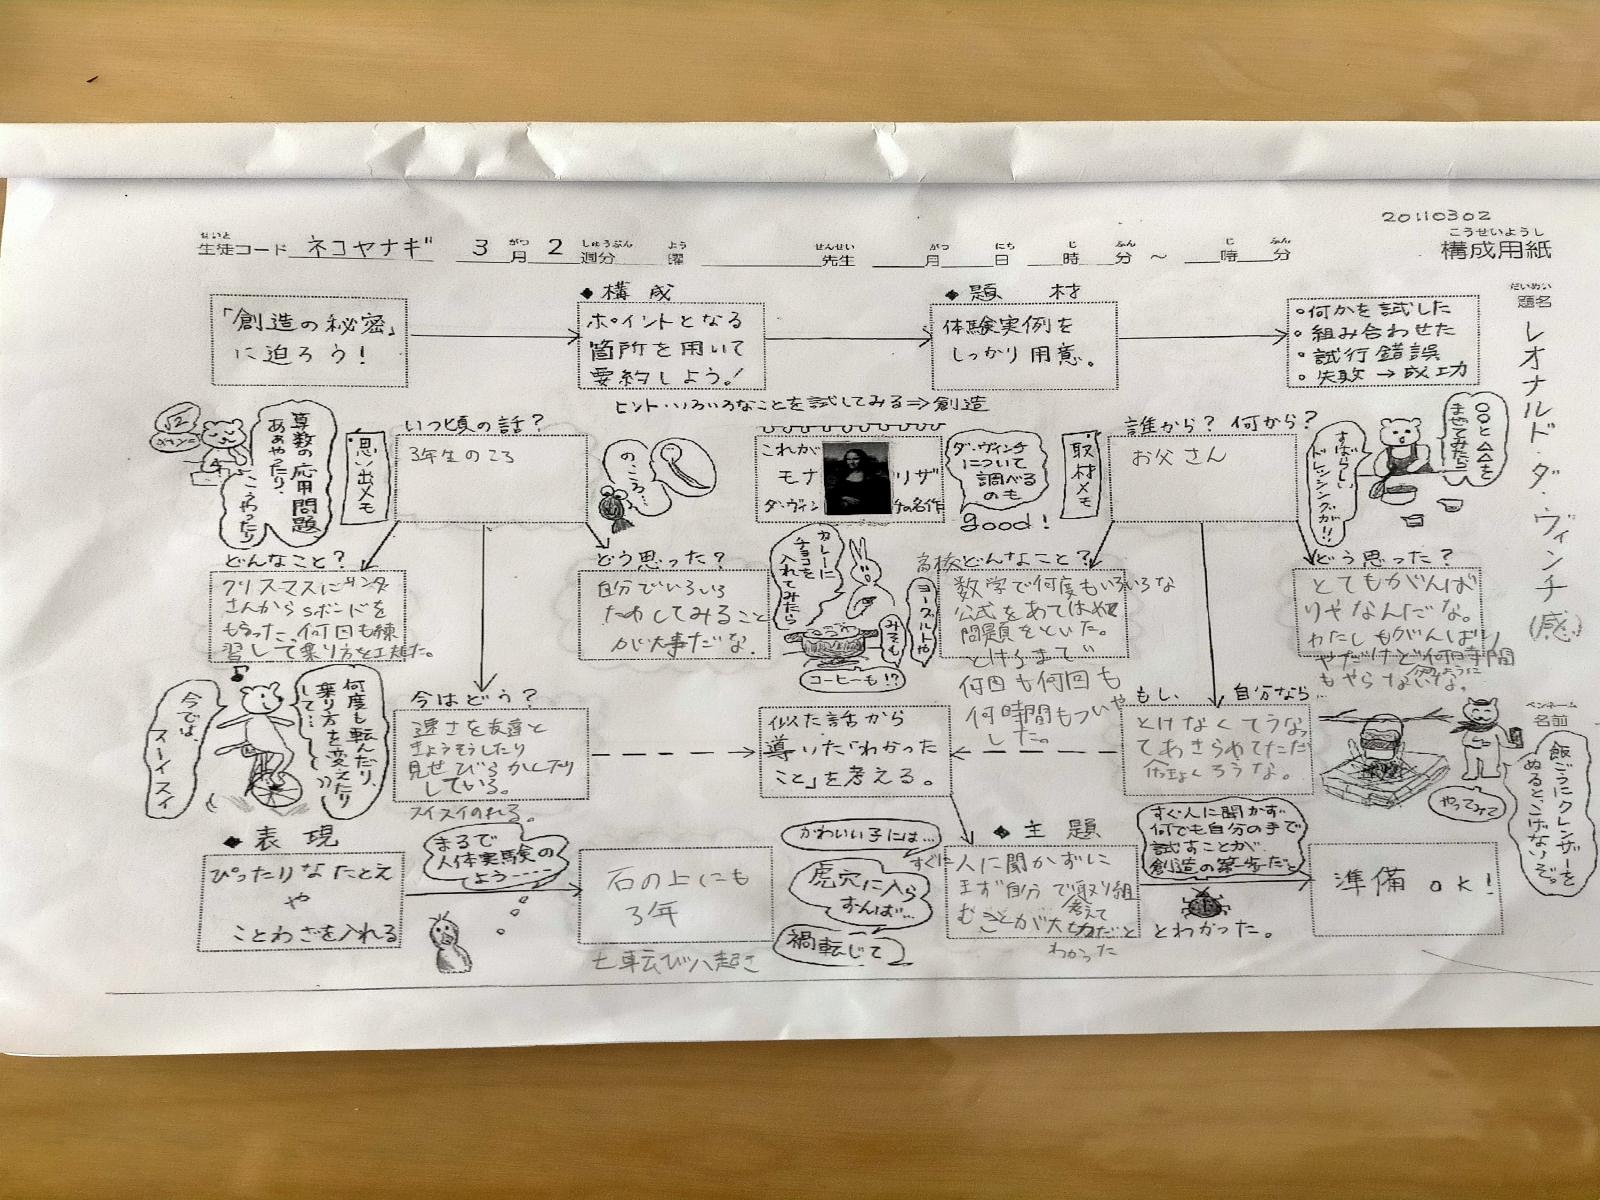 20110302
こうせいようし
構成用紙
せいと
生徒コード ネコヤナギ 3月 2週分 曜 先生 月 日 時 分 ～ 時 分
がつ しゅうぶん よう せんせい がつ にち じ ふん じ ふん
だいめい
題名
レオナルド・ダ・ヴィンチ(感)
「創造の秘密」
に迫ろう!
◆構成
ポイントとなる
箇所を用いて
要約しよう!
◆題材
体験実例を
しっかり用意。
・何かを試した
・組み合わせた
・試行錯誤
・失敗→成功
ヒント・いろいろなことを試してみる⇒創造
√2
算数の応用問題
ああやったり、
こうやったり
思い出メモ
いつ頃の話?
3年生のころ
のころ…
これが
モナ リザ
ダ・ヴィンチの名作
ダ・ヴィンチ
について
調べる
のも
good!
取材メモ
誰から? 何から?
お父さん
○○と△△を
まぜてみたら
すばらしい
ドレッシングが!!
どんなこと?
クリスマスにサンタ
さんからSボンドを
もらった。何回も練
習して乗り方を工夫した。
どう思った?
自分でいろいろ
ためしてみること
が大事だな
カレーに
チョコを
入れてみたら
ヨーグルトや
みそも
コーヒーも!?
高校
どんなこと?
数学で何度もいろいろな
公式をあてはめて
問題をといた。
とけるまで
何回も何回も
何時間もついや
した。
どう思った?
とてもがんば
りやなんだな。
わたしもがんばり
やだけど何時間
もやらないな。
何度も転んだり、
乗り方を変えたり
して…
今では、
スーイスイ
今はどう?
速さを友達と
きょうそうしたり
見せびらかしたり
している。
スイスイのれる。
似た話から
導いた「わかった
こと」を考える。
もし、自分なら…
とけなくてうなっ
てあきらめてただ
ペンネーム
名前
飯ごうにクレンザーを
ぬるとこげないぞ。
やってみて
◆表現
ぴったりなたとえ
や
ことわざを入れる
まるで
人体実験の
よう----
石の上にも
3年
七転び八起き
かわいい子には…
虎穴に入ら
ずんば…
禍転じて
◆主題
すぐに人に聞かずに
まず自分で取り組
考えて
むことが大切だと
わかった
すぐ人に聞かず
何でも自分の手で
試すことが
創造の第一歩だと
とわかった。
準備OK!